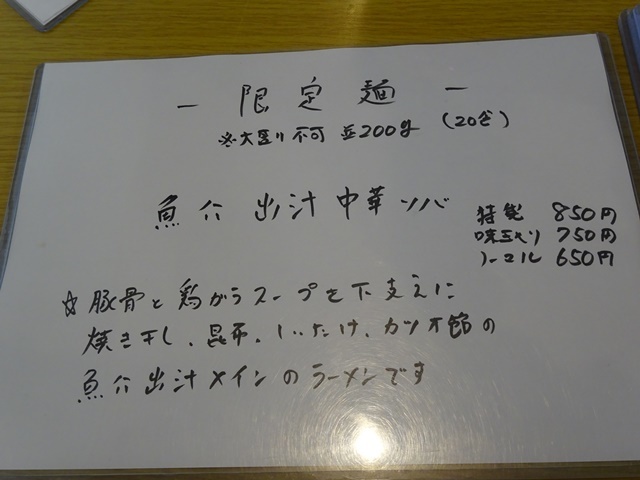 - 限定麺 -
※大盛り不可 並200g (20食)
魚介出汁中華ソバ
特製 850円
味玉入り 750円
ノーマル 650円
☆豚骨と鶏ガラスープを下支えに
焼き干し、昆布、しいたけ、カツオ節の
魚介出汁メインのラーメンです